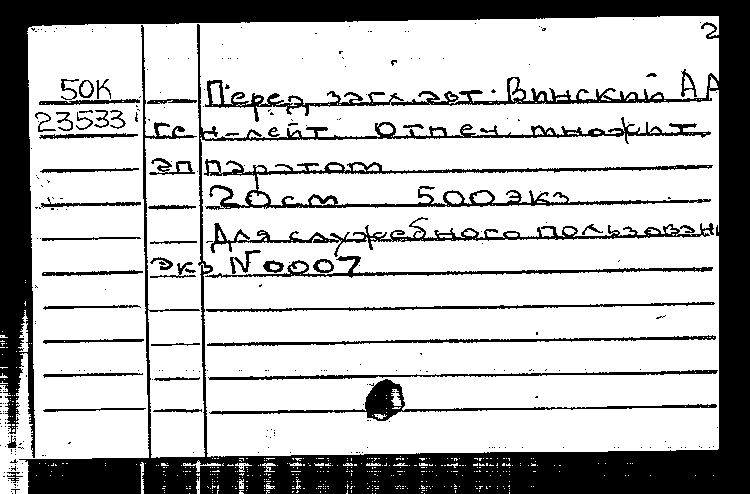 2
50К Перед загл. авт: Винский АА
23533 ген-лейт. Отпеч. множит.
аппаратом
20 см 500 экз
Для служебного пользовани
Экз N 0007